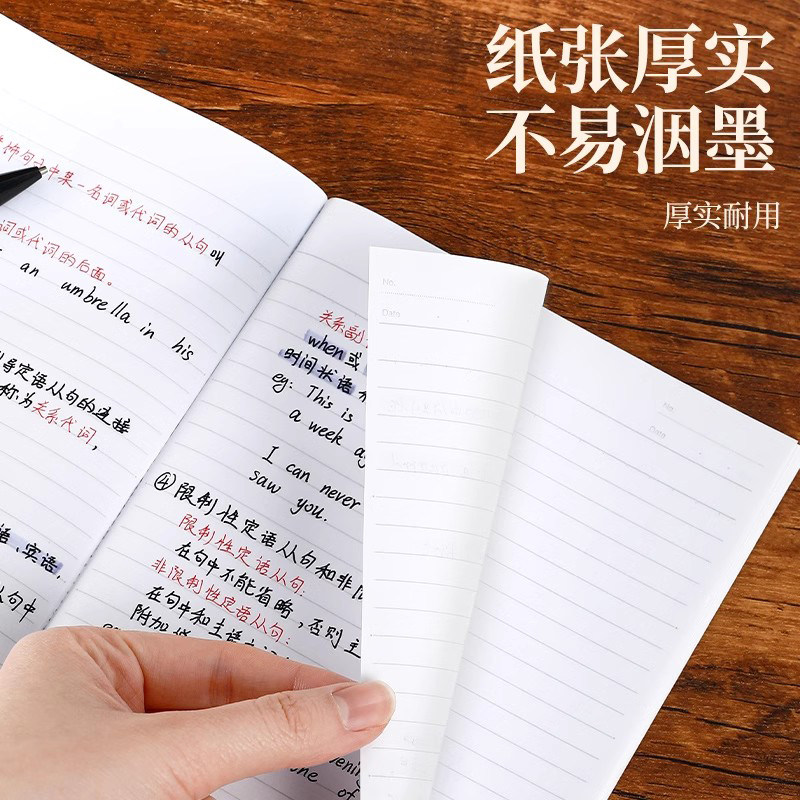 纸张厚实
不易洇墨
厚实耐用
饰句子中某一名词或代词的从句叫
词或代词的后面。
an umbrella in his
导定语从句的连接
称为关系代词,
语、宾语,
从句中
关系副
when或
时间状语
eg: This is
a week
I can never
saw you.
④限制性定语从句和非限
限制性定语从句:
在句中不能省略,否则主
非限制性定语从句:
在句中和主语
附加
one of
No.
Date
No.
Date